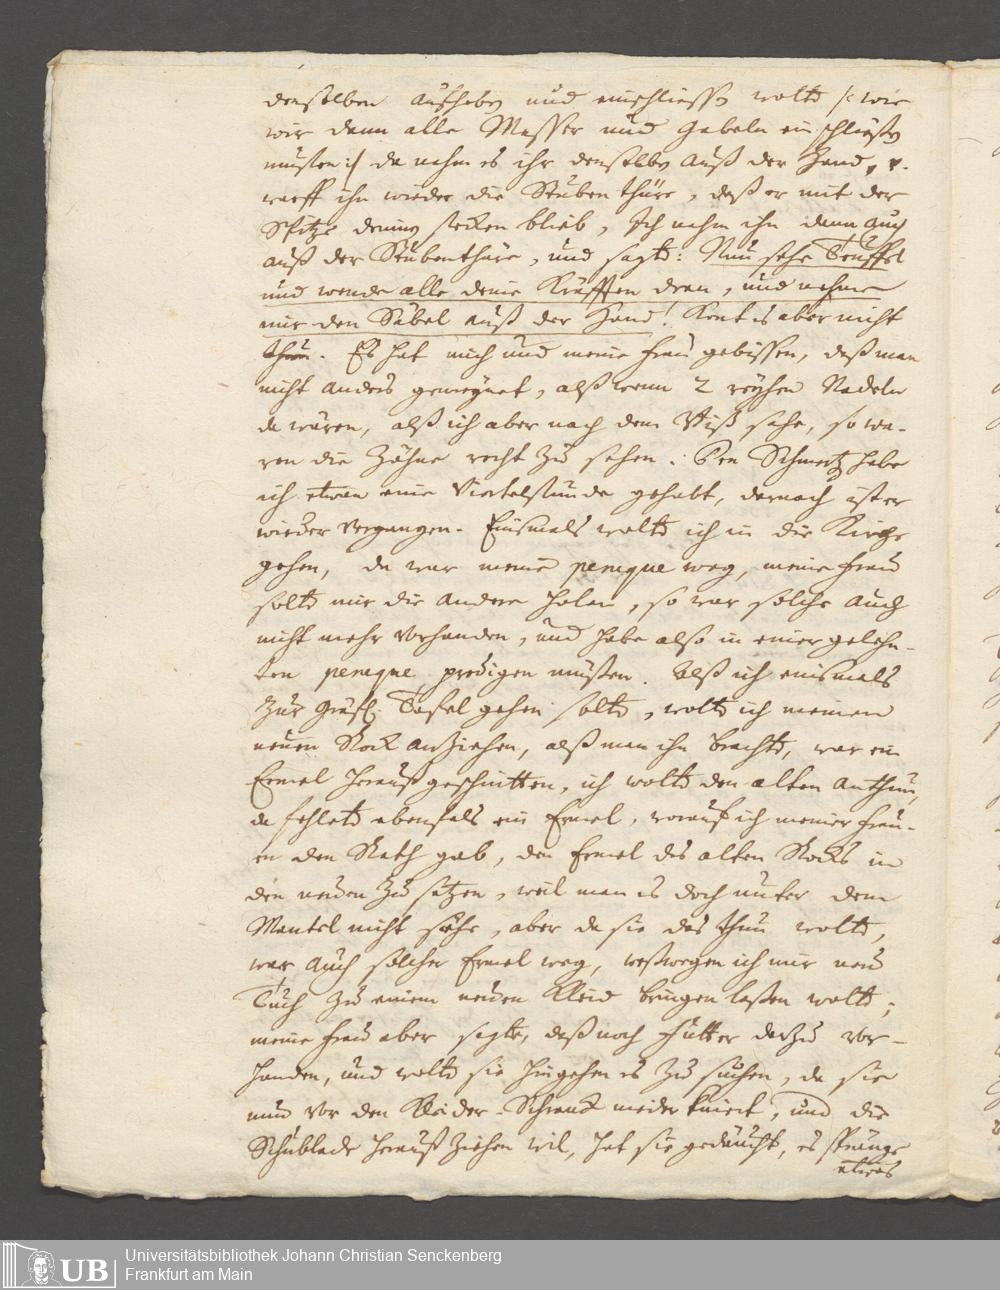 denselben aufheben und einschliessen wolte /: wie
wir dann alle Messer und Gabeln einschließen
musten :/ da nahm es ihr denselben auß der Hand, v.
warff ihn wieder die Stuben thüre, daß er mit der
Spitze drinnen stecken blieb, Ich nahm ihn dann auch
auß der Stubenthüre, und sagte: Nun sehe Teuffel
und wende alle deine Kräfften dran, und nehme
mir den Säbel auß der Hand! Kont es aber nicht
thun. Es hat mich und meine Frau gebissen, daß man
nicht anders gemeynet, alß wenn 2 reyhen Nadeln
da wären, alß ich aber nach dem Biß sahe, so wa-
ren die Zähne recht zu sehen. Den Schmertz habe
ich etwan eine Viertelstunde gehabt, darnach ist er
wieder vergangen. Einsmals wolte ich in die Kirche
gehen, da war meine peruque weg, meine Frau
solte mir die andere holen, so war solche auch
nicht mehr vorhanden, und habe also in einer gelehn-
ten peruque predigen müssen. Alß ich einsmals
zur Gräfl. Tafel gehen solte, wolte ich meinen
neuen Rock anziehen, alß man ihn brachte, war ein
Ermel herauß geschnitten, ich wolte den alten anthun,
da fehlete ebenfals ein Ermel, worauf ich meiner Frau-
en den Rath gab, den Ermel des alten Rocks in
den neuen zu setzen, weil man es doch unter dem
Mantel nicht sähe, aber da sie das thun wolte,
war auch solcher Ermel weg, weßwegen ich mir neu
Tuch zu einem neuen Kleid bringen laßen wolte;
meine Frau aber sagte, daß noch Futter darzu vor-
handen, und wolte sie hingehen es zu suchen, da sie
nun vor den Kleider-Schranck nieder kniet, und die
Schublade herauß ziehen wil, hat sie gedäucht, es spränge
etwas
UB
Universitätsbibliothek Johann Christian Senckenberg
Frankfurt am Main